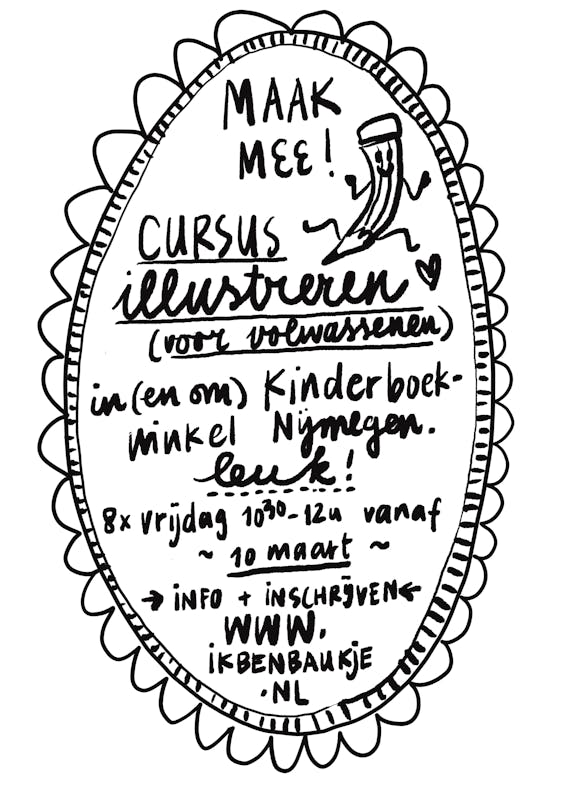 MAAK
MEE!
CURSUS
illustreren
(voor volwassenen)
in (en om) Kinderboek-
winkel Nijmegen.
leuk!
8x vrijdag 10³⁰-12u vanaf
~ 10 maart ~
→ INFO + INSCHRIJVEN ←
WWW.
IKBENBAUKJE
.NL